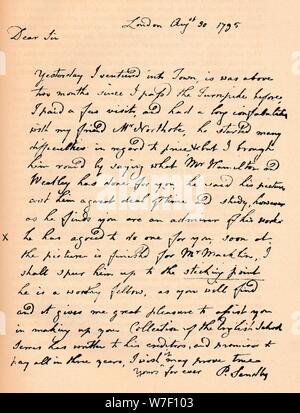 London Augst 30 1795
Dear Sir
Yesterday I ventured into Town, is was above
two months since I pass'd the Turnpike before,
I paid a few visits, and had a long confabulation
with my friend Mr Northcote, he started many
difficulties in regard to price &c but I brought
him round by saying what Mr Hamilton and
Weatley has done for you, he said his pictures
cost him a great deal of time and study, however
as he finds you are an admirer of his works
x he has agreed to do one for you, soon as
the picture is finished for Mr Macklin, I
shall spur him up to the sticking point
he is a worthy fellow, as you will find
and it gives me great pleasure to assist you
in making up your Collection of the English School
Serres has written to his creditors, and promises to
pay all in three years, I wish may prove true
Yours for ever P. Sandby
alamy
Image ID: W7F103
www.alamy.com